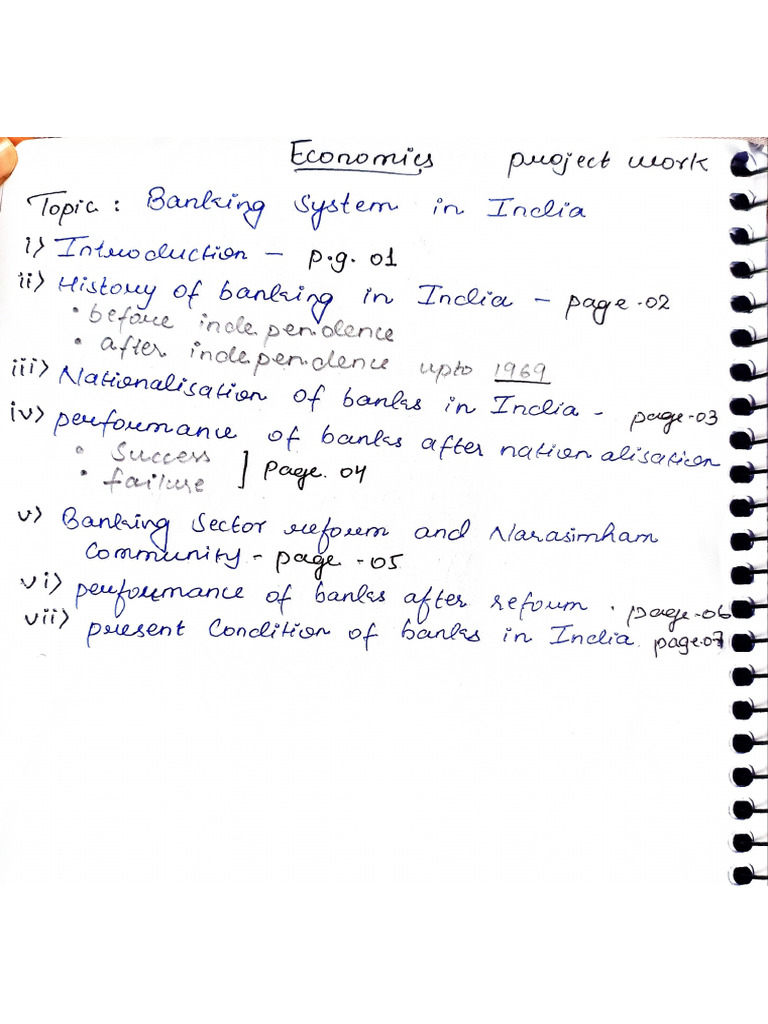 Economics project work
Topic : Banking System in India
i) Introduction - p.g. 01
ii) History of banking in India - page-02
• before independence
• after independence upto 1969
iii) Nationalisation of banks in India - page-03
iv) performance of banks after nationalisation
• Success
• failure ] page. 04
v) Banking Sector reform and Narasimham
Community - page -05
vi) performance of banks after reform . page-06
vii) present Condition of banks in India. page.07